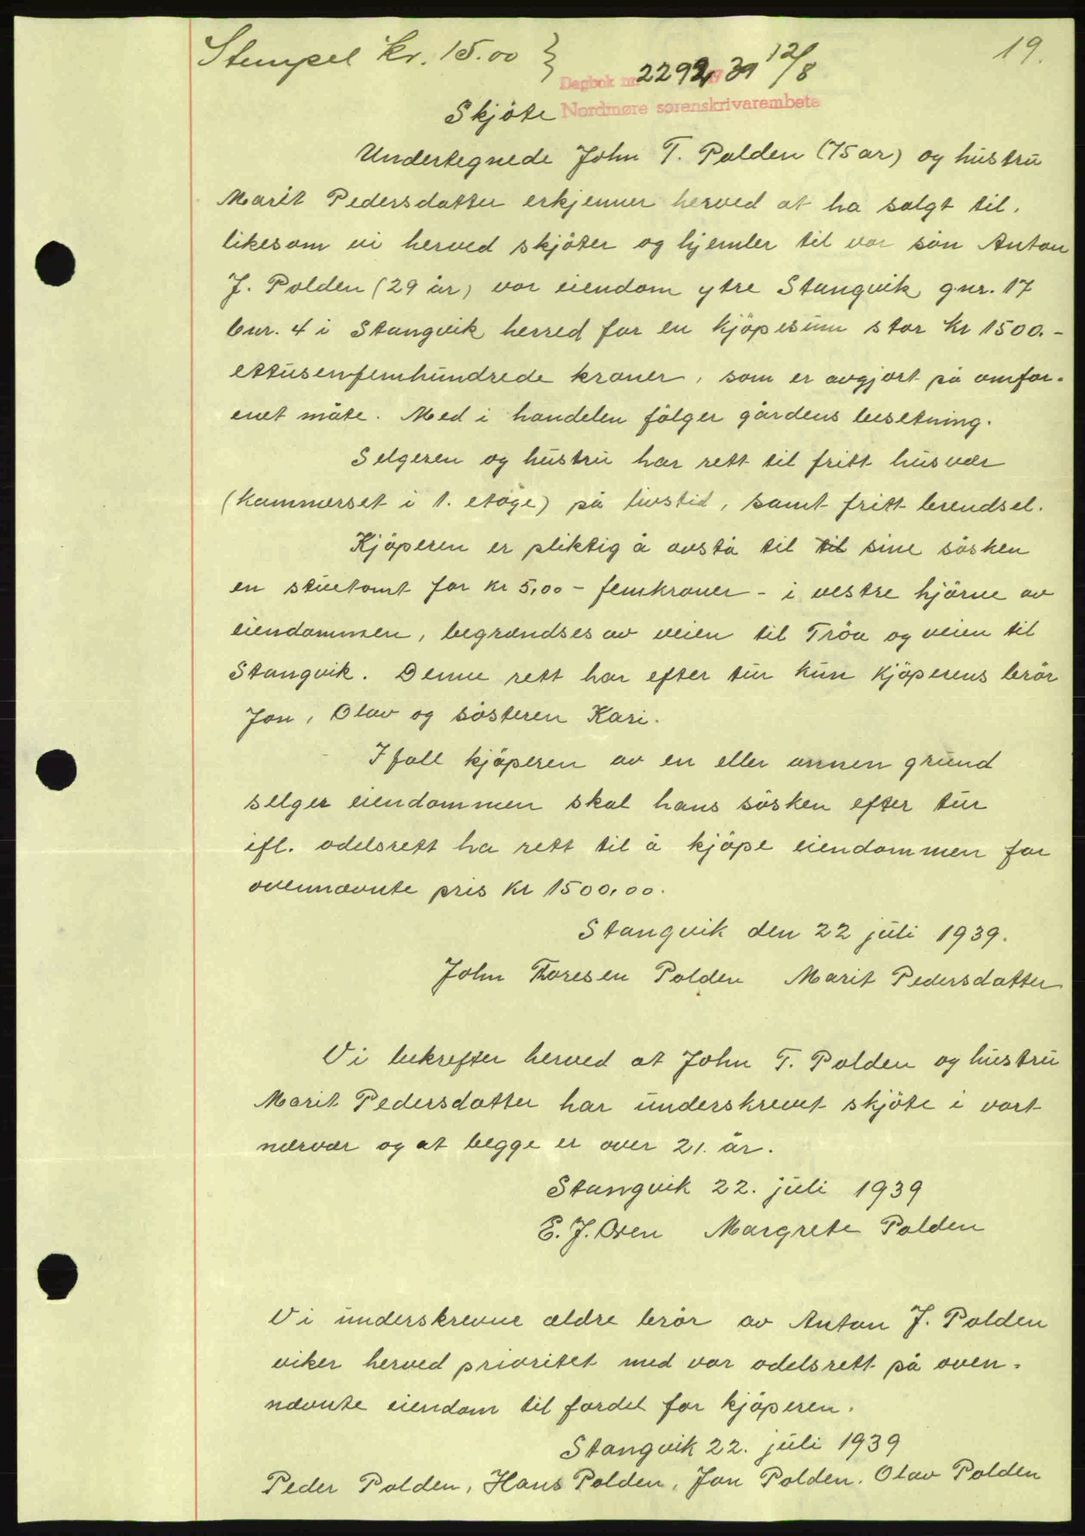 Stempel kr. 15.00 }
19.
Dagbok nr. 2292 1939 12/8
Nordmøre sorenskrivarembete
Skjöte
Undertegnede John T. Polden (75 år) og hustru
Marit Pedersdatter erkjenner herved at ha solgt til,
likesom vi herved skjöter og hjemler til vor sön Anton
J. Polden (29 år) vor eiendom ytre Stangvik gnr. 17
bnr. 4 i Stangvik herred for en kjöpesum stor kr 1500.-
ettusenfemhundrede kroner, som er avgjort på omfor-
enet måte. Med i handelen fölger gårdens besetning.
Selgeren og hustru har rett til fritt husvær
(kammerset i 1. etage) på livstid, samt fritt brendsel.
Kjöperen er pliktig å avstå til til sine sösken
en stuetomt for kr 5,00 - femkroner - i vestre hjörne av
eiendommen, begrændses av veien til Tröa og veien til
Stangvik. Denne rett har efter tur kun kjöperens brör
Jon, Olav og sösteren Kari.
Ifall kjöperen av en eller annen grund
selger eiendommen skal hans sösken efter tur
ifl. odelsrett ha rett til å kjöpe eiendommen for
ovennævnte pris kr 1500,00.
Stangvik den 22 juli 1939.
John Toresen Polden Marit Pedersdatter
Vi bekrefter herved at John T. Polden og hustru
Marit Pedersdatter har underskrevet skjöte i vort
nærvær og at begge er over 21. år.
Stangvik 22. juli 1939
E. J. Oxen Margrete Polden
Vi underskrevne ældre brör av Anton J. Polden
viker herved prioritet med vor odelsrett på oven-
nævnte eiendom til fordel for kjöperen.
Stangvik 22. juli 1939
Peder Polden, Hans Polden, Jon Polden. Olav Polden